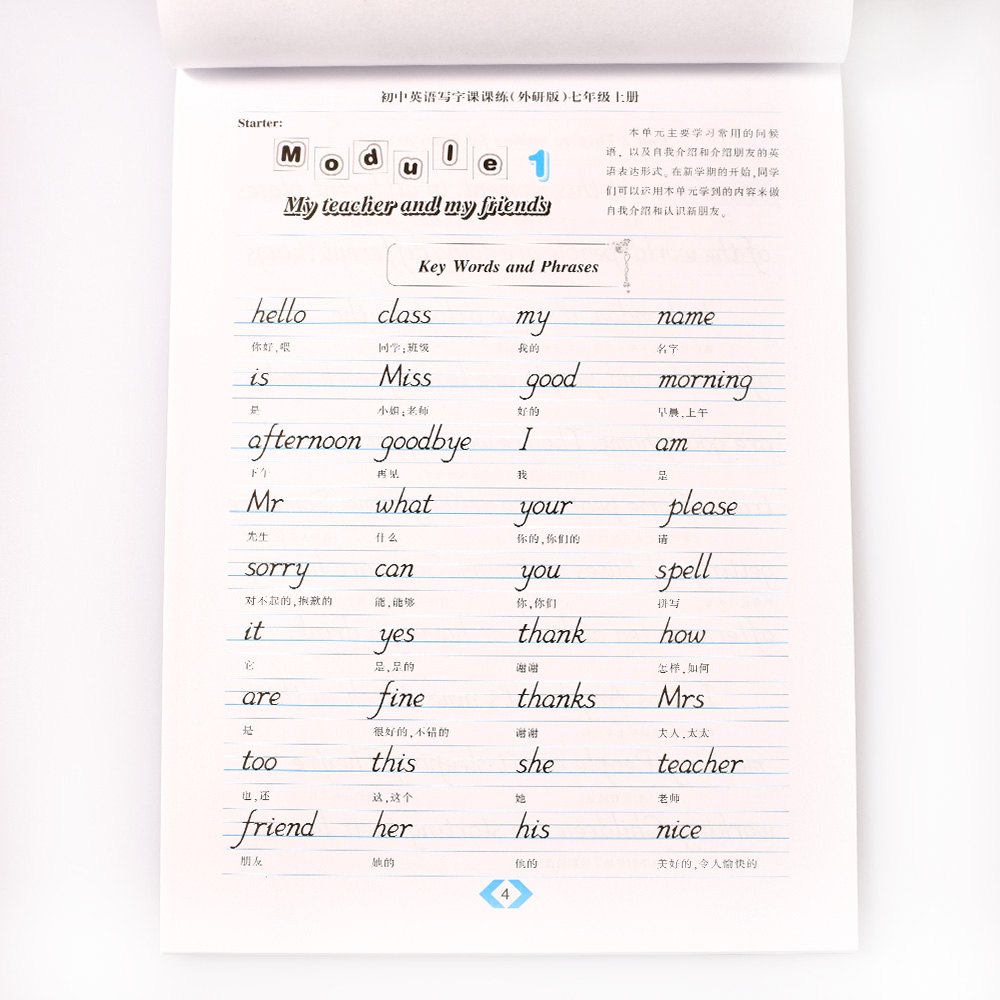 初中英语写字课课练(外研版)七年级上册
Starter:
Module 1
My teacher and my friends
本单元主要学习常用的问候
语，以及自我介绍和介绍朋友的英
语表达形式。在新学期的开始,同学
们可以运用本单元学到的内容来做
自我介绍和认识新朋友。
Key Words and Phrases
hello class my name
你好,喂 同学;班级 我的 名字
is Miss good morning
是 小姐;老师 好的 早晨,上午
afternoon goodbye I am
下午 再见 我 是
Mr what your please
先生 什么 你的,你们的 请
sorry can you spell
对不起的,抱歉的 能,能够 你,你们 拼写
it yes thank how
它 是,是的 谢谢 怎样,如何
are fine thanks Mrs
是 很好的,不错的 谢谢 夫人,太太
too this she teacher
也,还 这,这个 她 老师
friend her his nice
朋友 她的 他的 美好的,令人愉快的
4